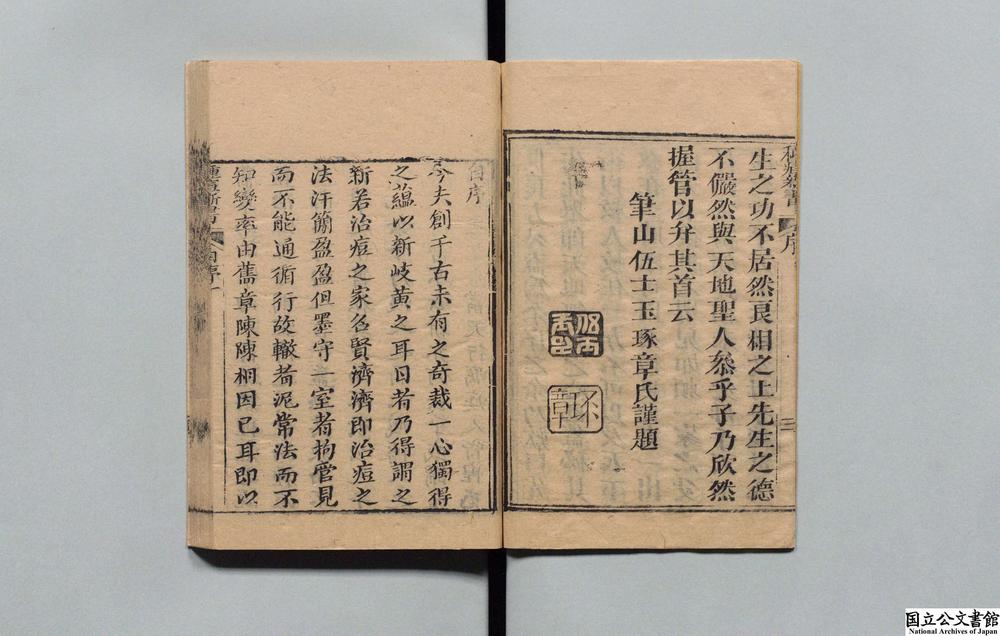 生之功不居然良相之上先生之德
不儼然與天地聖人叅乎予乃欣然
握管以弁其首云
筆山伍士玉琢章氏謹題
琢章
序
三
自序
今夫創于古未有之奇裁一心獨得
之蘊以新岐黃之耳目者乃得謂之
新若治痘之家名賢濟濟即治痘之
法汗簡盈盈但墨守一室者拘管見
而不能通循行故轍者泥常法而不
知變率由舊章陳陳相因已耳即以
種痘新書
自序
一
国立公文書館
National Archives of Japan